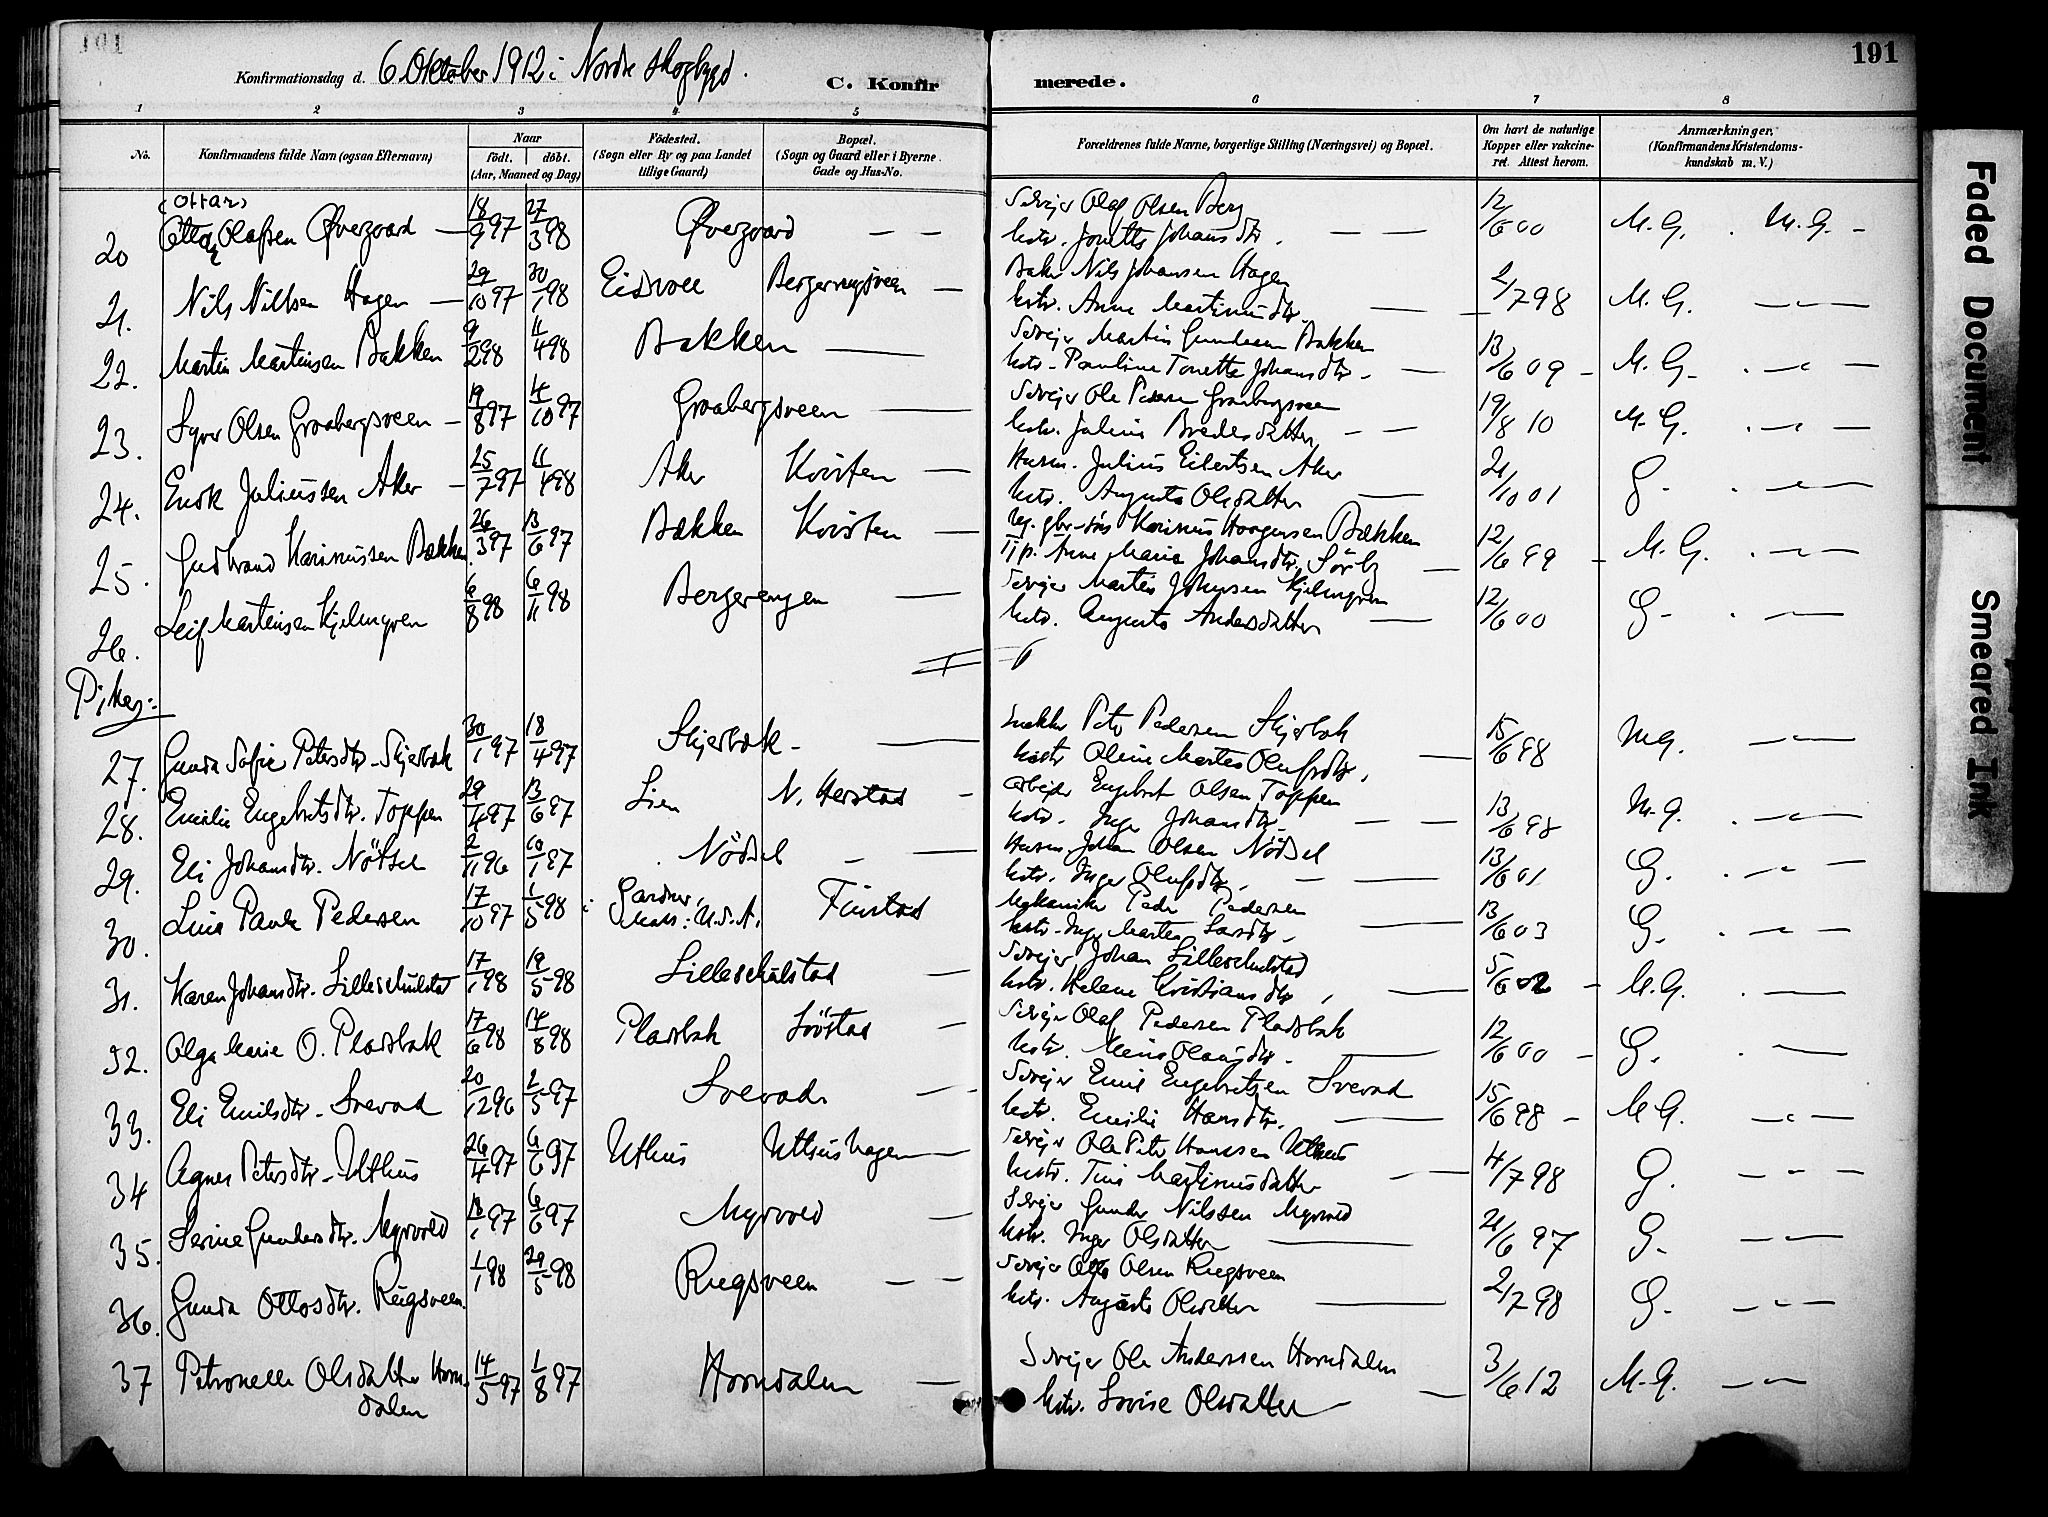 101
191
Konfirmationsdag d. 6 Oktober 1912 i Nordre Skogbygd.
C. Konfirmerede.
1 2 3 4 5 6 7 8
No.
Konfirmandens fulde Navn (ogsaa Efternavn)
Naar
født. døbt.
(Aar, Maaned og Dag)
Födested.
(Sogn eller By og paa Landet tillige Gaard)
Bopæl.
(Sogn og Gaard eller i Byerne Gade og Hus-No.
Forældrenes fulde Navne, borgerlige Stilling (Næringsvei) og Bopæl.
Om havt de naturlige Kopper eller vakcineret. Attest herom.
Anmærkninger. (Konfirmandens Kristendomskundskab m. V.)
(Ottar)
20 Olafsen Øvergaard — 18/9 97 27/3 98 Øvergaard — — Selvejer Olaf Olsen Berg
hstr. Jonette Johansdtr. — — 12/6 00 M.G. . M.G. -
21. Nils Nilssen Hagen — 29/10 97 30/1 98 Eidsvoll Bergerengsveen — Baker Nils Johansen Hagen
hstr. Anne Martinusdtr. — 2/7 98 M.G. — " —
22. Martin Martinsen Bakken 9/2 98 11/4 98 Bakken — Selvejer Martin Gundersen Bakken
hstr. Pauline Tonette Johansdtr. — 13/6 09 - M.G. . — " —
23. Syver Olsen Graabergsveen — 19/8 97 4/10 97 Graabergsveen — Selvejer Ole Pedersen Graabergsveen
hstr. Juline Bredesdatter — — 19/8 10 M.G. . — " —
24. Enok Juliussen Aker — 25/7 97 11/4 98 Aker Kvisten — Husm. Julius Eilertsen Aker
hstr. Augusta Olsdatter — 21/10 01 G. . — " —
25. Gudbrand Karinussen Bækken 26/3 97 13/6 97 Bækken Kvisten — Ug. gbr.-søn Karinus Haagensen Bækken
pp. Anne Marie Johansdtr. Sörby — 12/6 99 - M.G. . — " —
26. Leif Martinsen Kjelengven 6/8 98 6/11 98 Bergerengen — Selvejer Martin Johnsen Kjelengven
hstr. Augusta Andersdatter — 12/6 00 G. . — " —
Piker:
27. Gunda Sofie Petersdtr. Skjerbæk 30/1 97 18/4 97 Skjerbæk — Snekker Peter Pedersen Skjerbæk
hustr. Oline Martea Olufsdtr. — 15/6 98 M.G. — " —
28. Emilie Engebretsdtr. Toppen 29/4 97 13/6 97 Lien N. Herstad - Arbejder Engebret Olsen Toppen
hstr. Inger Johansdtr. — — 13/6 98 M.G. . — " —
29. Eli Johansdtr. Nötsel 2/11 96 10/1 97 Nödsel — — Husm. Johan Olsen Nödsel
hstr. Inger Olufsdtr. — — 13/6 01 G. . — " —
30. Lina Paula Pedersen 17/10 97 1/5 98 i Gardner, Mass: U.S.A. Finstad Mekaniker Peder Pedersen
hstr. Inger Martea Larsdtr. — 13/6 03 G. . — " —
31. Karen Johansdtr. Lilleskulstad 17/1 98 19/5 98 Lilleskulstad — Selvejer Johan Lilleskulstad
hstr. Helene Kristiansdtr. — 5/6 02 - M.G. . —
32. Olga Marie O. Pladsbak 17/6 98 14/8 98 Pladsbak Lövstad — Selvejer Olaf Pedersen Pladsbak
hstr. Marie Olausdtr. — 12/6 00 - G. . —
33. Eli Emilsdtr. Sverad 20/12 96 2/5 97 Sverad. — Selvejer Emil Engebretsen Sverad
hstr. Emilie Hansdtr. — 15/6 98 - M.G. — " —
34 Agnes Petersdtr. Uthus 26/4 97 6/6 97 Uthus Uthushagen — Selvejer Ole Peter Hanssen Uthus
hustr. Tina Martinusdatter — — 4/7 98 G. — - —
35. Serine Gundersdtr. Myrvold 18/1 97 6/6 97 Myrvold — Selvejer Gunder Nilssen Myrvold
hstr. Inger Olsdatter — 21/6 97 G. — —
36. Gunda Ottosdtr. Ruegsveen. 1/1 98 29/5 98 Ruegsveen — — Selvejer Otto Olsen Ruegsveen
hstr. Augusta Olsdatter — 2/7 98 G. — - —
37 Petronelle Olsdatter Horndalen 14/5 97 1/8 97 Horndalen — Selvejer Ole Anderssen Horndalen
hstr. Lovise Olsdatter — 3/6 12 M.G. — —
Faded Document
Smeared Ink